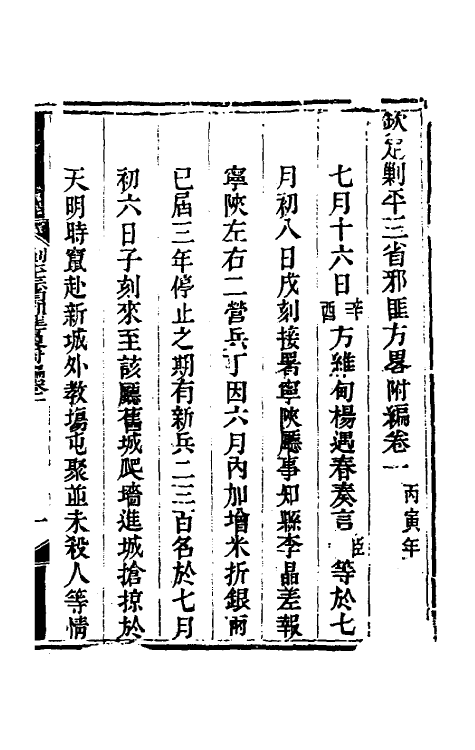 欽定剿平三省邪匪方畧附編卷一 丙寅年
七月十六日辛酉方維甸楊遇春奏言臣等於七
月初八日戌刻接署寧陝廳事知縣李晶差報
寧陝左右二營兵丁因六月內加增米折銀兩
已屆三年停止之期有新兵二三百名於七月
初六日子刻來至該廳舊城爬墻進城搶掠於
天明時竄赴新城外教塲屯聚並未殺人等情